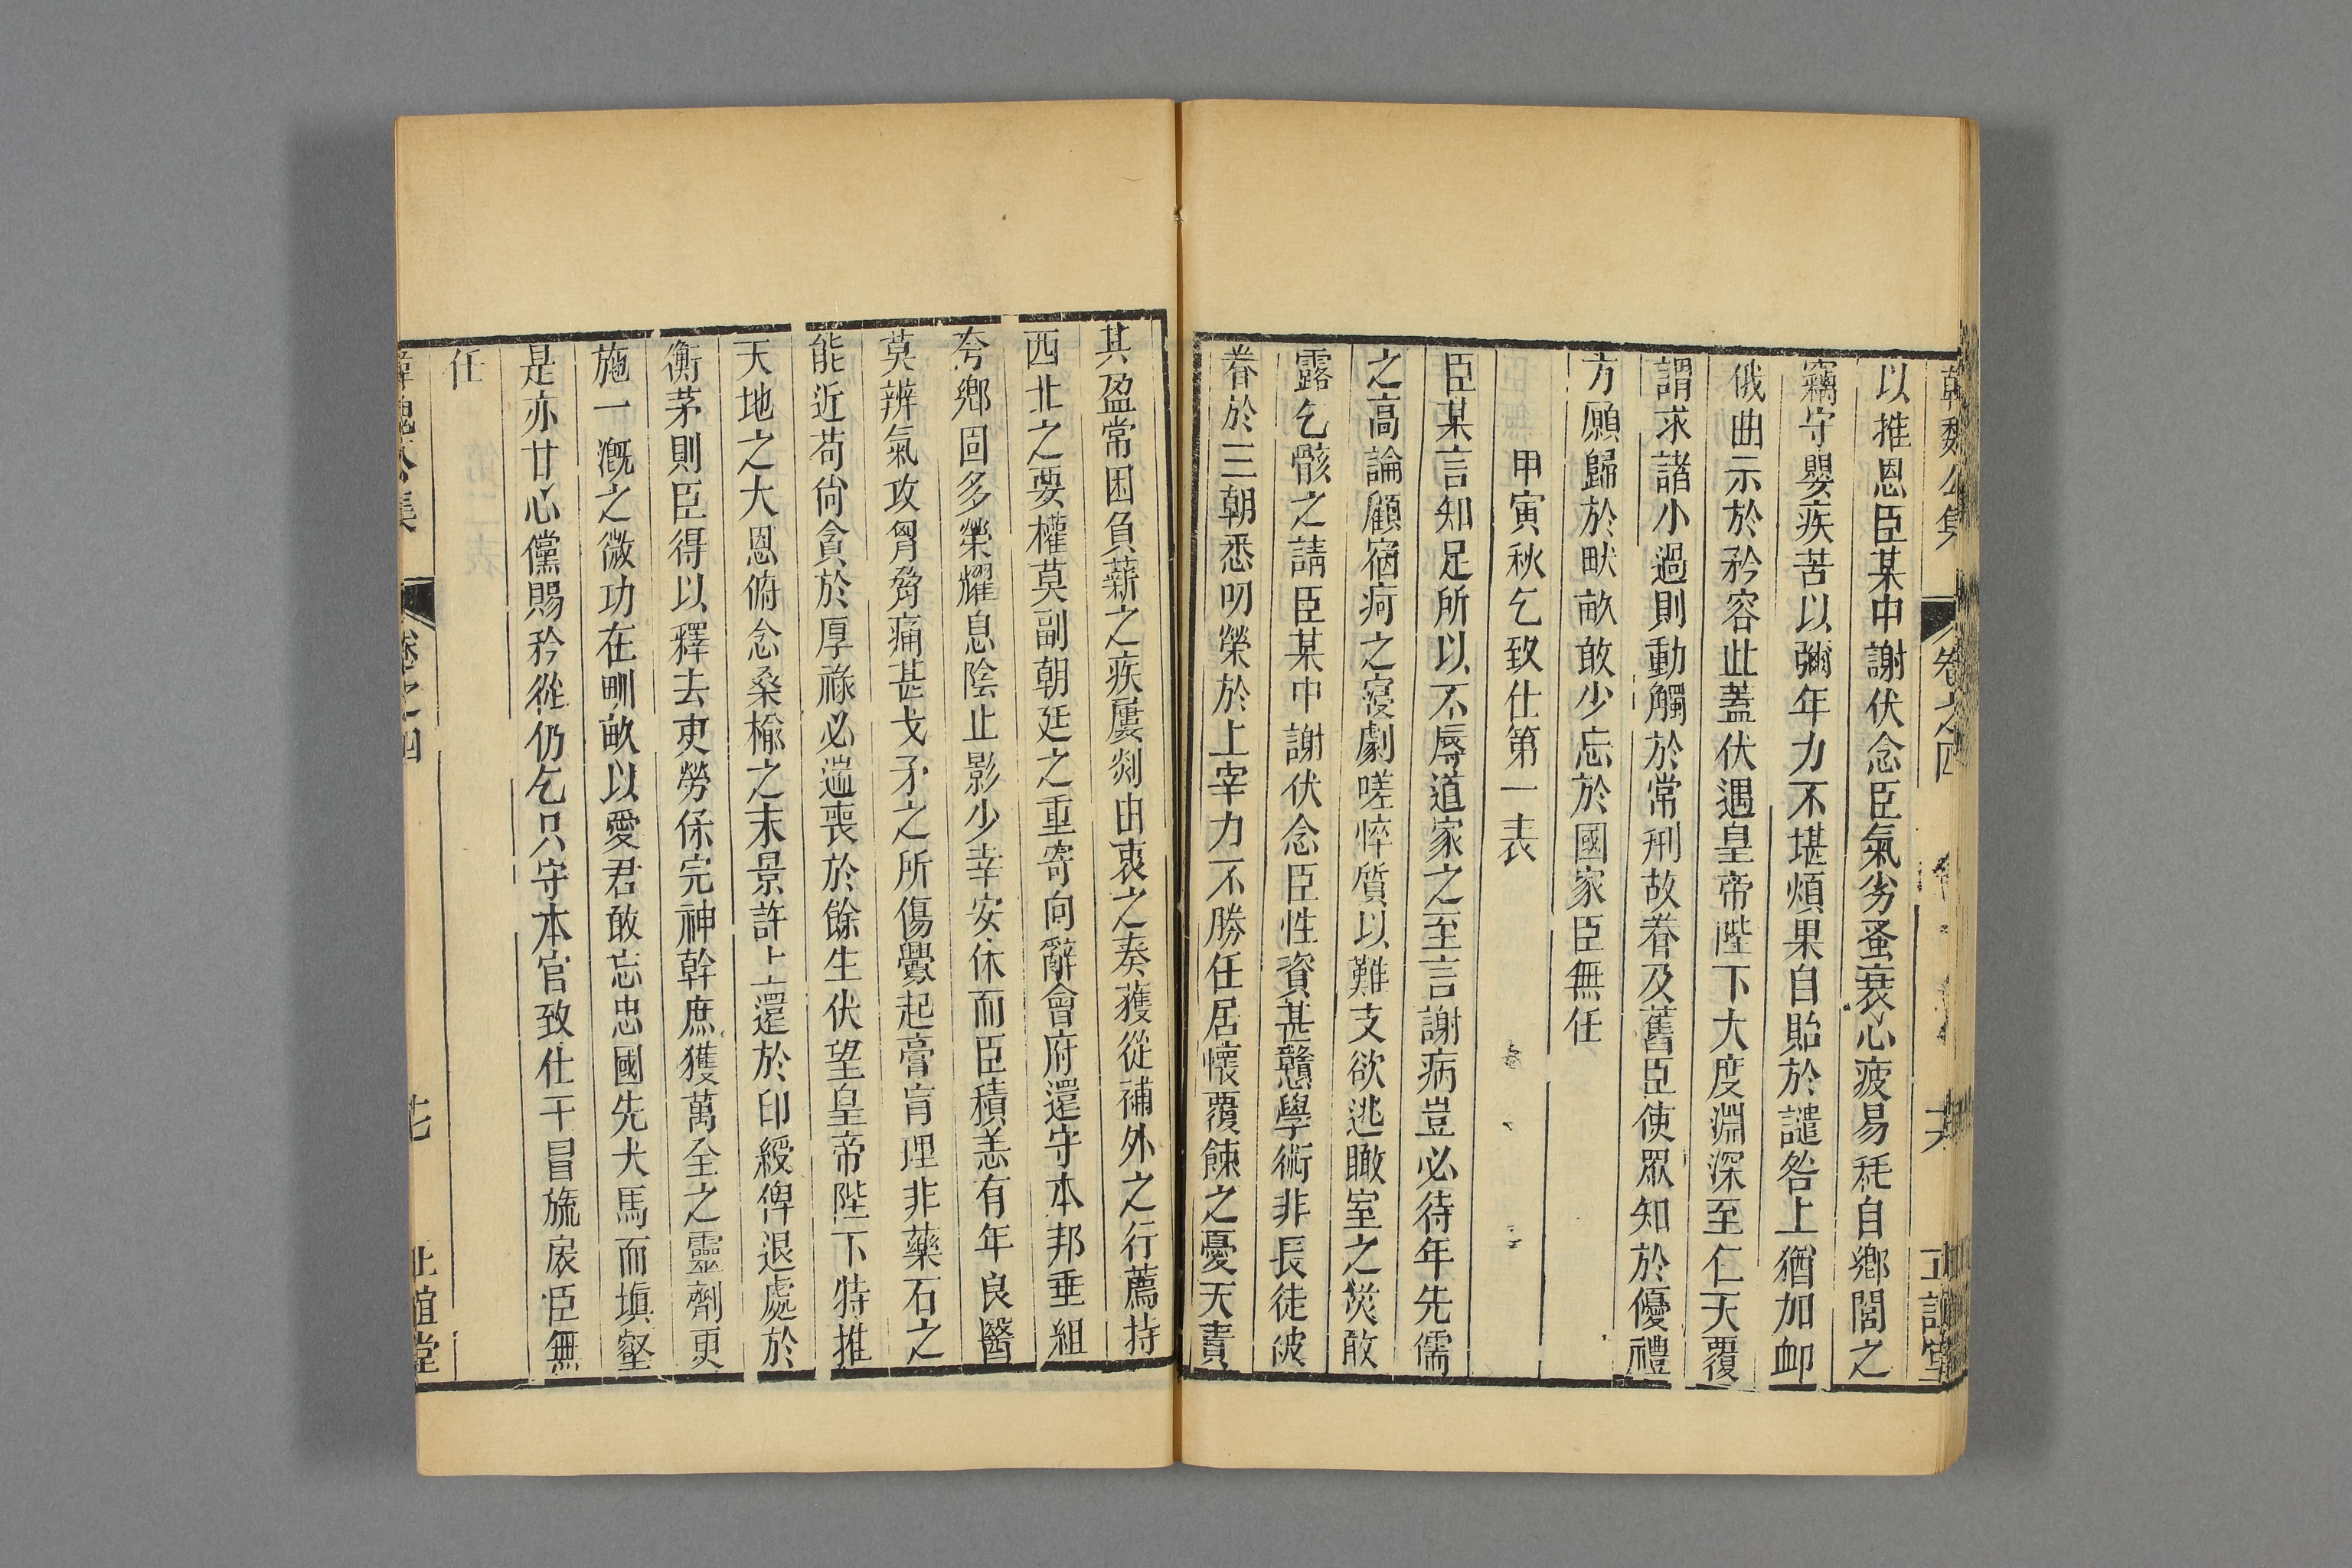 韓魏公集 卷之四 正誼堂
以推恩臣某中謝伏念臣氣劣蚤衰心疲易耗自鄉閭之
竊守嬰疾苦以彌年力不堪煩果自貽於譴咎上猶加卹
俄曲示於矜容此蓋伏遇皇帝陛下大度淵深至仁天覆
謂求諸小過則動觸於常刑故眷及舊臣使眾知於優禮
方願歸於畎畝敢少忘於國家臣無任
甲寅秋乞致仕第一表
臣某言知足所以不辱道家之至言謝病豈必待年先儒
之高論顧宿痾之寖劇嗟悴質以難支欲逃瞰室之災敢
露乞骸之請臣某中謝伏念臣性資甚戇學術非長徒被
眷於三朝悉叨榮於上宰力不勝任居懷覆餗之憂天責
其盈常困負薪之疾屢剡由衷之奏獲從補外之行薦持
西北之要權莫副朝廷之重寄向辭會府還守本邦垂組
夸鄉固多榮耀息陰止影少幸安休而臣積恙有年良醫
莫辨氣攻胷脅痛甚戈矛之所傷釁起膏肓理非藥石之
能近苟尙貪於厚祿必遄喪於餘生伏望皇帝陛下特推
天地之大恩俯念桑榆之末景許上還於印綬俾退處於
衡茅則臣得以釋去吏勞係完神幹庶獲萬全之靈劑更
施一溉之微功在畎畝以愛君敢忘忠國先犬馬而塡壑
是亦甘心儻賜矜從仍乞只守本官致仕干冒旒扆臣無
任
韓魏公集 卷之四 正誼堂